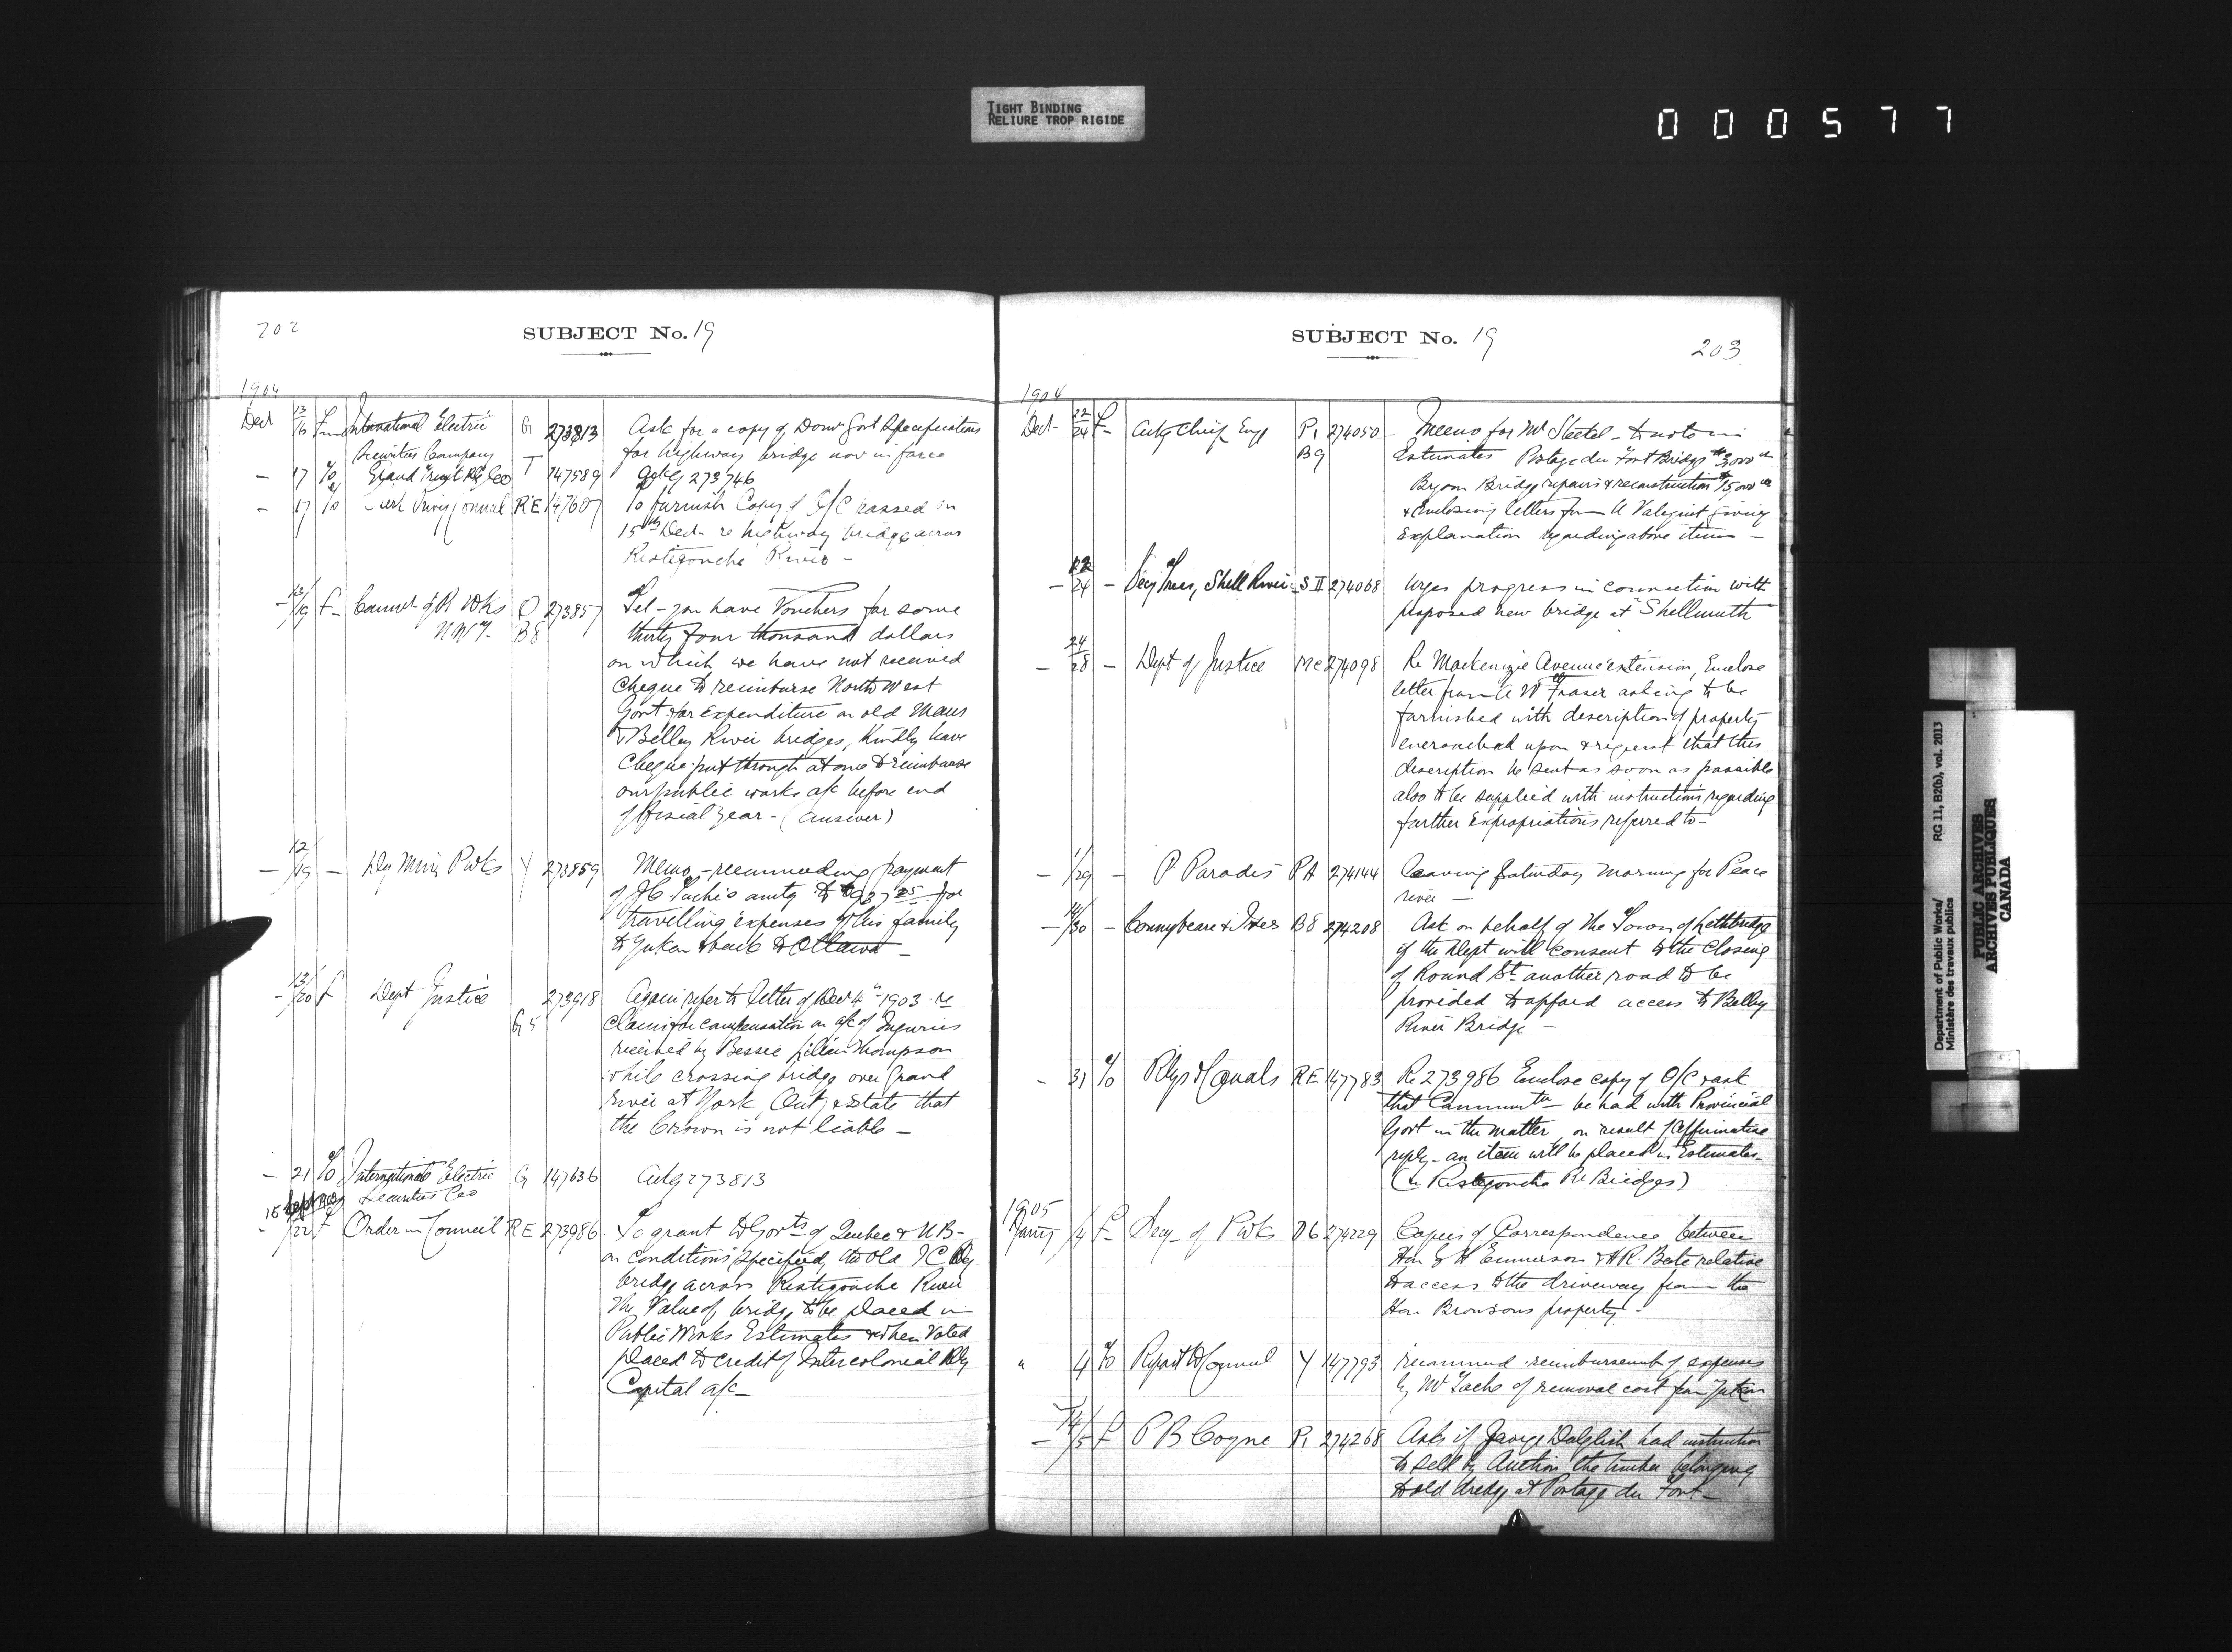 TIGHT BINDING
RELIURE TROP RIGIDE
000577
202
SUBJECT No. 19
1904
Dec 13/16 Fm International Electric G 273813 Ask for a copy of Domn Govt Specifications
Securities Company for highway bridge now in force
- 17 To Grand Trunk Rly Co T 147589 273746
- 17 To Clerk Privy Council RE 147607 To furnish Copy of O/C passed on
15th Dect re highway bridge across
Restigouche River -
- 13/19 F- Commr of P. Wks O 273857 Tel - you have Vouchers for some
N W T. B8 thirty four thousand dollars
on which we have not received
Cheque to reimburse North West
Govt for Expenditure on old Mans
& Belley River bridges, Kindly have
Cheque put through at once to reimburse
our public works a/c before end
of fiscal year - (answer)
- 12/19 - Dep Minr Pwks Y 273859 Memo - recommending payment
of J C Tache's to for
travelling expenses of his family
to Yukon & back to Ottawa -
- 13/20 f Dept Justice 273918 Again refer to letter of Dec 4th 1903 re
G5 claim for compensation on a/c of Injuries
received by Bessie Lilian Thompson
while crossing bridge over Grand
River at York, Ont, & state that
the Crown is not liable -
- 21 To International Electric G 147636 273813
Securities Co
15 Sept 1903
- /22 f Order in Council RE 273986 To grant to Govts of Quebec & N B -
on conditions specified, the old I C Rly
bridge across Restigouche River
The Value of bridge to be placed in
Public Works Estimates & when Voted
placed to credit of Intercolonial Rly
Capital a/c -
SUBJECT No. 19
203
1904
Dec- 22/24 F- Actg Chief Engr P1 274050 Memo for Mr Steckel - to note in
B9 Estimates Portage du Fort Bridge $3,000
Bryson Bridge repairs & reconstruction $15,000
& Enclosing letters from A Valiquet giving
Explanation regarding above items -
- 22/24 - Secy Treas, Shell River S II 274068 Urges progress in connection with
proposed new bridge at Shellmuth
- 24/28 - Dept of Justice Mc 274098 Re Mackenzie Avenue extension, Enclose
letter from A W Fraser asking to be
furnished with description of property
encroached upon & request that this
description be sent as soon as possible
also to be supplied with instructions regarding
further Expropriations referred to -
- /29 - P Paradis PA 274144 Leaving Saturday morning for Peace
river -
- /30 - Connybeare & Ives B8 274208 Ask on behalf of the Town of Lethbridge
if the Dept will consent to the Closing
of Round St another road to be
provided to afford access to Belley
River Bridge -
- 31 To Rlys & Canals RE 147783 Re 273986 Enclose copy of O/C & ask
that Communtn be had with Provincial
Govt in the matter on result of affirmative
reply - an item will be placed in Estimates -
(re Restigouche R Bridges)
1905
Jany /4 F- Secy of Pwks D6 274229 Copies of Correspondence between
Hon H Emmerson & H R. Bate relative
to access to the driveway from the
Hon Bronsons property -
" 4 To Report to Council Y 147793 recommend reimbursement of expenses
by Mr Tache of removal cost from Yukon
- /5 F P B Coyne P1 274268 Asks if George Dalglish had instruction
to sell by Auction the timber belonging
to old dredge at Portage du Fort -
Department of Public Works/
Ministère des travaux publics
RG 11, B2(b), vol. 2013
PUBLIC ARCHIVES
ARCHIVES PUBLIQUES
CANADA